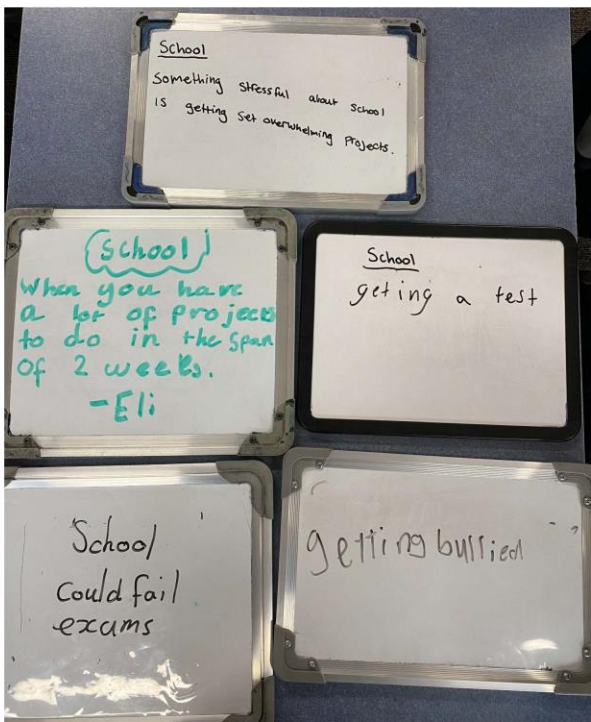 School
Something stressful about school
is getting set overwhelming projects.
School
When you have
a lot of projects
to do in the span
of 2 weeks.
-Eli
School
geting a test
School
could fail
exams
getting bullied